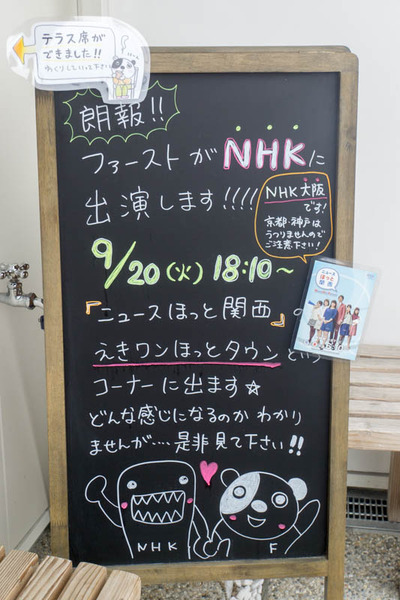 テラス席が
できました!!
ゆっくりしていって下さい
朗報!!
ファーストがNHKに
出演します!!!!
NHK大阪
です!
京都・神戸は
うつりませんので
ご注意下さい!
9/20(火) 18:10~
『ニュースほっと関西』の
えきワンほっとタウンという
コーナーに出ます☆
どんな感じになるのか わかり
ませんが‥‥是非見て下さい!!
ニュース
ほっと
関西
NHK
F